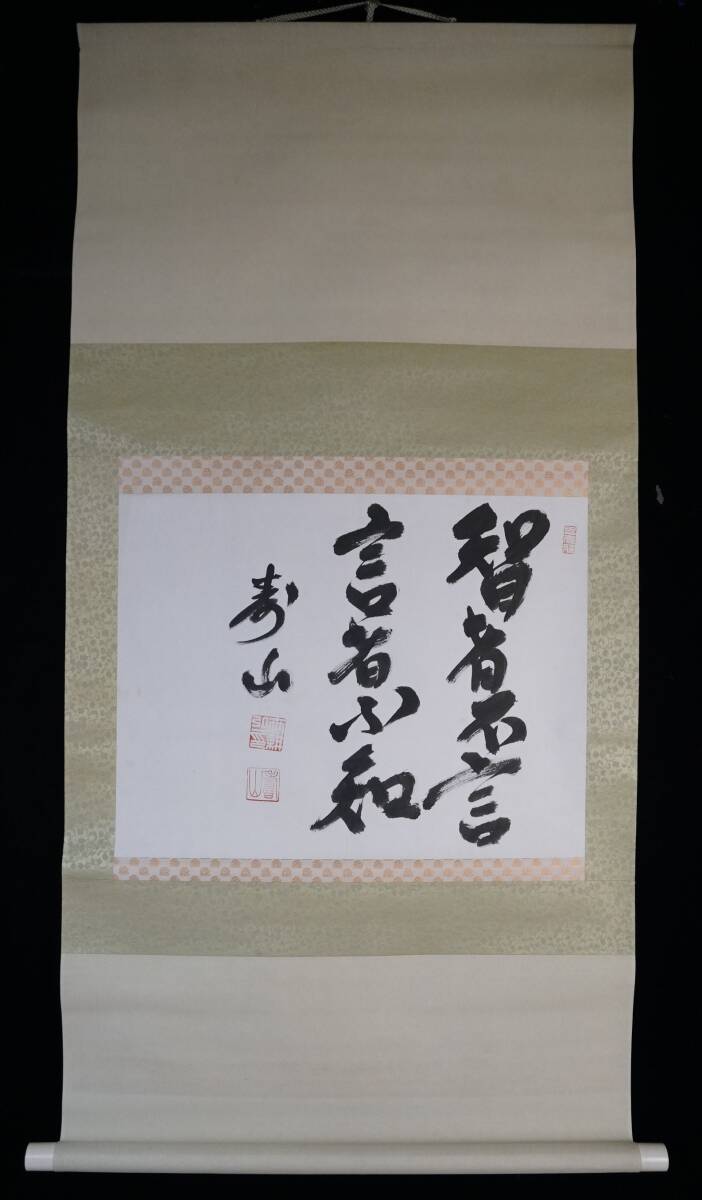 智者不言
言者不知
寿山